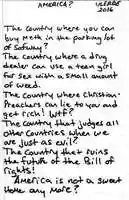 AMERICA? ULEBRE
2016
The Country where you can
buy Meth in the parking lot
of Safeway?
The country where a drug
dealer can rape a teen girl
for sex with a small amount
of weed.
The Country where Christian-
Preachers can lie to you and
get rich! WTF?
The Country that judges all
other Countries when we
are just as evil?
The Country that ruins
the future of the Bill of
rights!
America is not a sweet
Home any more?